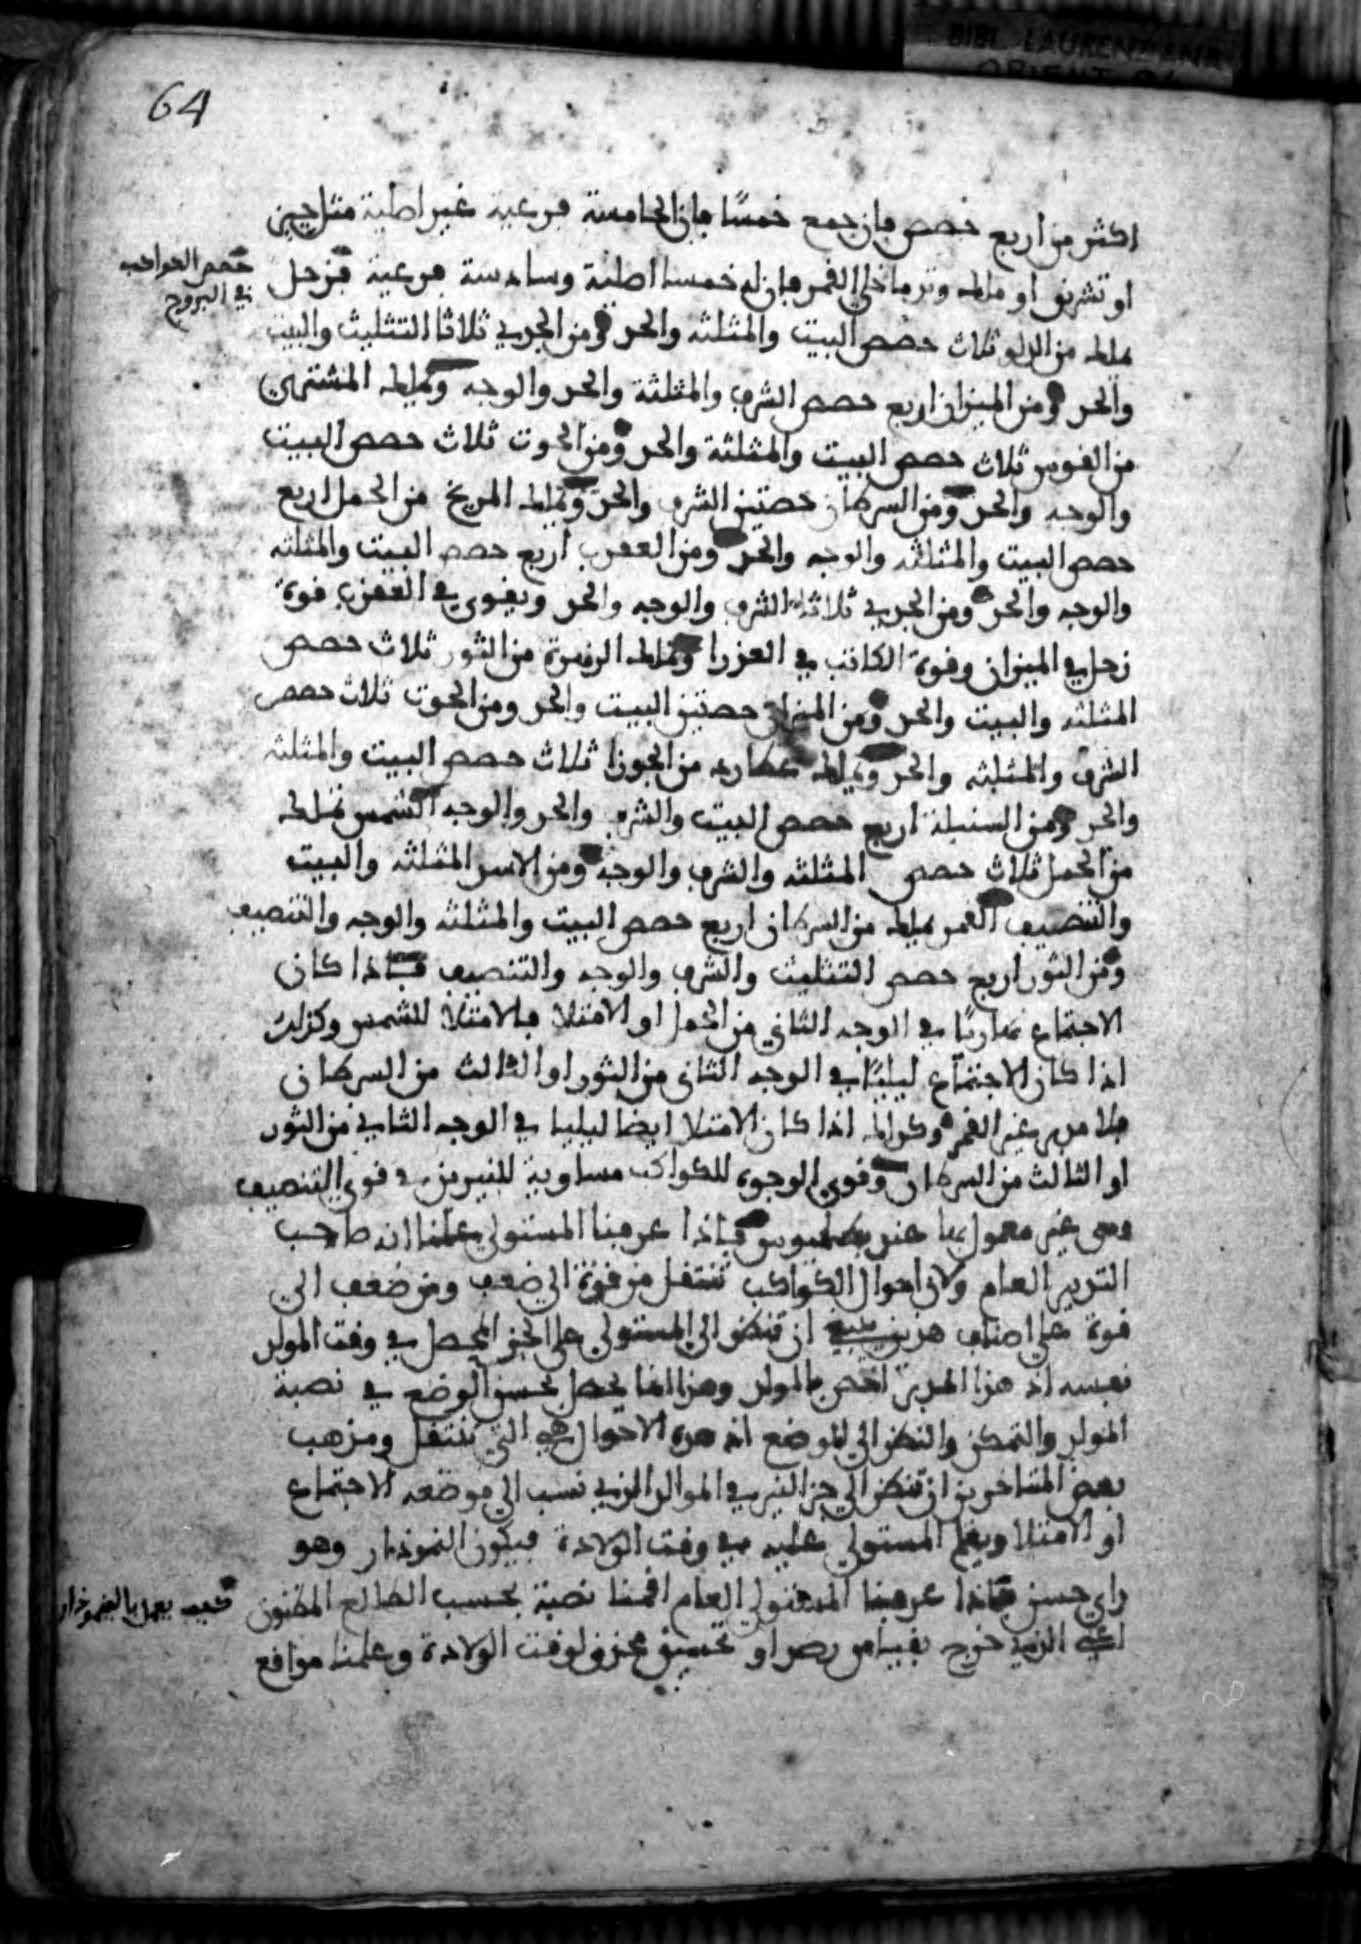 BIBL. LAURENZIANA
ORIENT.
64
اكثر من اربع حصص فان جمع خمسًا فان الخامسة فرعية غير اصلية مثل حيز
او تشريق او ما له وتر ما خلى القمر فان له خمسا اصلية وسادسة فرعية فزحل
حصص الكواكب
في البروج
يملك من الدلو ثلاث حصص البيت والمثلثه والحد ومن الجدي ثلاثا التثليث والبيت
والحد ومن الميزان اربع حصص الشرف والمثلثة والحد والوجه ويملك المشتري
من القوس ثلاث حصص البيت والمثلثة والحد ومن الحوت ثلاث حصص البيت
والوجه والحد ومن السرطان حصتين الشرف والحد ويملك المريخ من الحمل اربع
حصص البيت والمثلثه والوجه والحد ومن العقرب اربع حصص البيت والمثلثه
والوجه والحد ومن الجدي ثلاثة الشرف والوجه والحد ويقوى في العقرب قوة
زحل في الميزان وقوة الكاتب في العذرا وتملك الزهرة من الثور ثلاث حصص
المثلثه والبيت والحد ومن الميزان حصتين البيت والحد ومن الحوت ثلاث حصص
الشرف والمثلثه والحد ويملك عطارد من الجوزا ثلاث حصص البيت والمثلثه
والحد ومن السنبلة اربع حصص البيت والشرف والحد والوجه الشمس تملك
من الحمل ثلاث حصص المثلثه والشرف والوجه ومن الاسد المثلثه والبيت
والتنصيف القمر يملك من السرطان اربع حصص البيت والمثلثه والوجه والتنصيف
ومن الثور اربع حصص التثليث والشرف والوجه والتنصيف فاذا كان
الاجتماع نهاريًا في الوجه الثاني من الحمل او الامتلا فالامتلا للشمس وكذلك
اذا كان الاجتماع ليليًا في الوجه الثاني من الثور او الثالث من السرطان
فلا مدبر غير القمر وكذلك اذا كان الامتلا ايضا ليليا في الوجه الثاني من الثور
او الثالث من السرطان وقوى الوجوه للكواكب مساوية للنيرين في قوى التنصيف
وهي غير معمول بها عند بطلميوس فاذا عرفنا المستولي علمنا انه صاحب
التدبير العام ولان احوال الكواكب تنتقل من قوة الى ضعف ومن ضعف الى
قوة على اصناف هذين ينبغي ان تنظر الى المستولي على الجز المحصل في وقت المولد
نفسه اذ هذا المدبر اخص بالمولد وهذا انما يحصل بحسن الوضع في نصبة
المولد والتمكن والنظر الى الموضع اذ هذه الاحوال هي التي تنتقل ومذهب
بعض المتاخرين ان تنظر الى جز النير في الموالد الذي نسب الى موضعه الاجتماع
او الامتلا ويعلم المستولي عليه في وقت الولادة فيكون النموذار وهو
راي حسن فاذا عرفنا المستولي العام اقمنا نصبة بحسب الطالع المظنون
كيف يعمل بالنموذار
اعني الذي خرج بقياس رصد او تخمين محزر لوقت الولادة وعلمنا مواقع